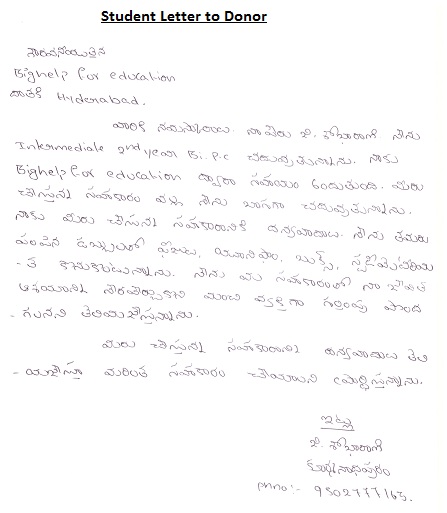 Student Letter to Donor
గౌరవనీయులైన
Bighelp for education
వారికి Hyderabad.
వారికి నమస్కారాలు. నా పేరు జి. శోభారాణి నేను
Intermediate 2nd year Bi.P.C చదువుతున్నాను. నాకు
Bighelp for education ద్వారా సహాయం అందుతుంది. మీరు
చేస్తున్న సహకారం వల్ల నేను బాగా చదువుతున్నాను.
నాకు మీరు చేస్తున్న సహకారానికి ధన్యవాదాలు. నేను తమరు
పంపిన డబ్బులతో ఫీజులు, యూనిఫాం, బుక్స్,
కొనుక్కుంటున్నాను. నేను మీ సహకారంతో నా జీవిత
ఆశయాన్ని మంచి వ్యక్తిగా గుర్తింపు పొంద
- గలనని తెలియజేస్తున్నాను.
మీరు చేస్తున్న సహకారానికి ధన్యవాదాలు తెలి
- యజేస్తూ మరింత సహకారం చేయాలని ప్రార్థిస్తున్నాను.
ఇట్లు
జి. శోభారాణి
phno:- 9502777165.